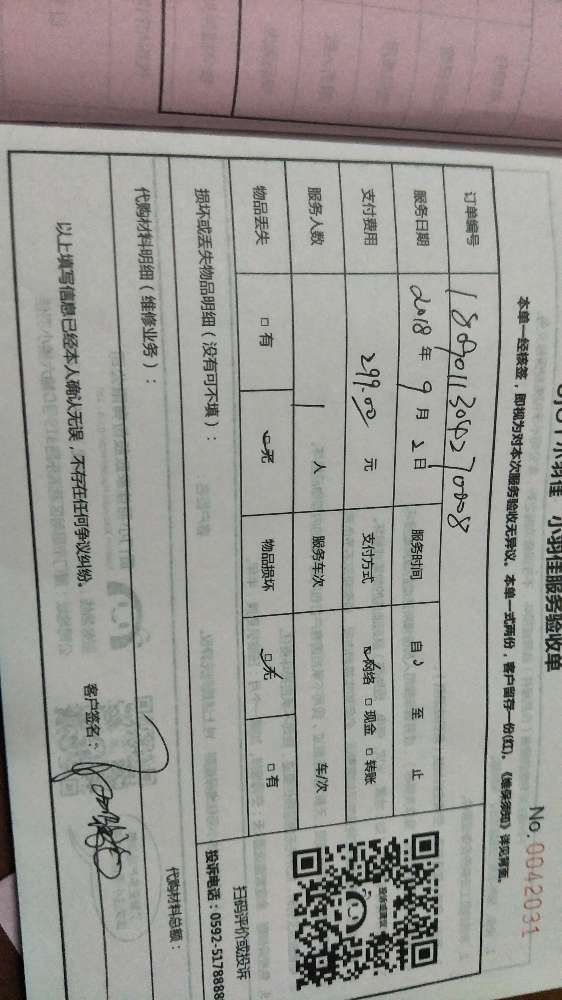 小羽佳 小羽佳服务验收单
No. 0042031
本单一经核签，即视为对本次服务验收无异议。本单一式两份，客户留存一份(红)。《维保须知》详见背面。
订单编号
服务日期 2018 年 9 月 2 日 服务时间 自 至 止
支付费用 299.00 元 支付方式 ☑网络 □现金 □转账
服务人数 1 人 服务车次 车/次
物品丢失 □有 ☑无 物品损坏 ☑无 □有
损坏或丢失物品明细（没有可不填）：
扫码评价或投诉
投诉电话：0592-5178888
代购材料明细（维修业务）：
代购材料总额：
以上填写信息已经本人确认无误，不存在任何争议纠纷。
客户签名：